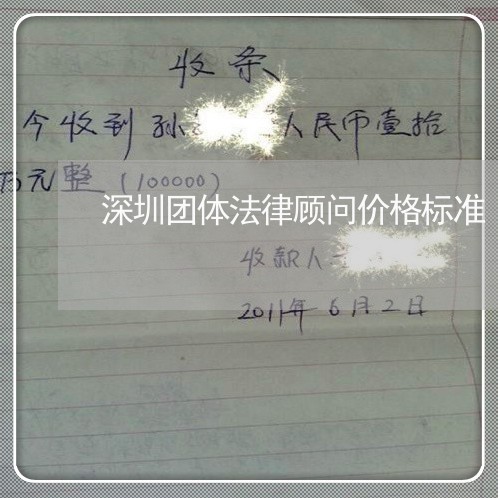 收条
今收到孙 人民币壹拾
万元整(100000)
深圳团体法律顾问价格标准
收款人:
2011年6月2日